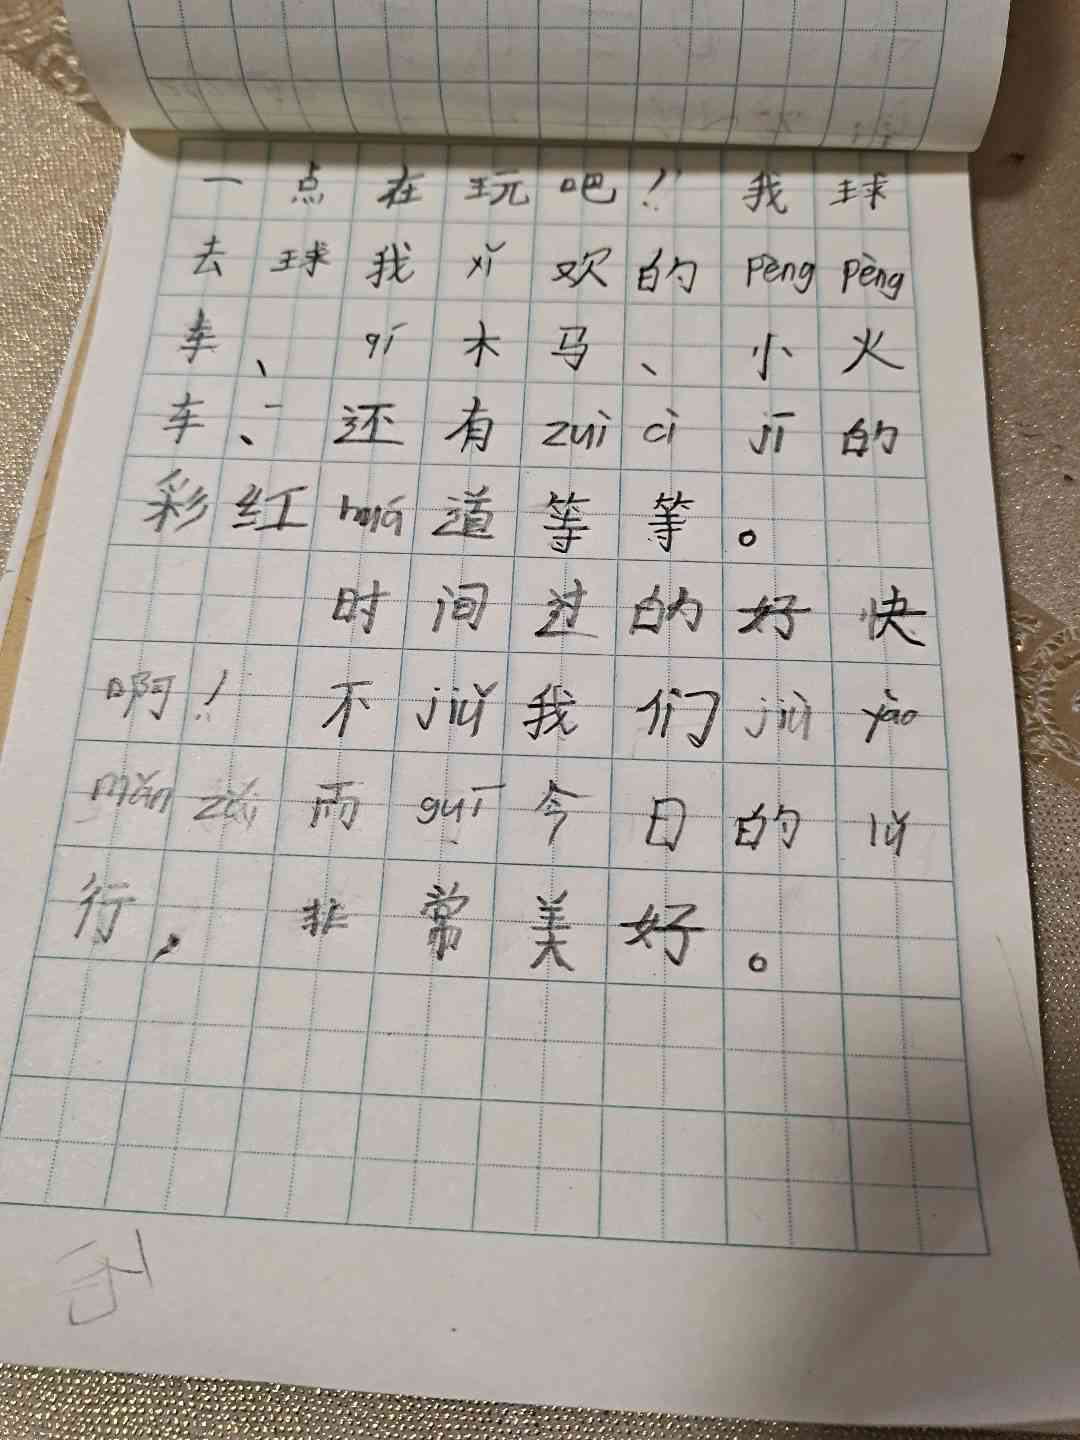 一点在玩吧！我球
去球我xǐ欢的pèngpèng
车、qí木马、小火
车、还有zuìcìjī的
彩红huá道等等。
时间过的好快
啊！不jiǔ我们jiù yào
mǎn zài而guī今日的lǚ
行，非常美好。